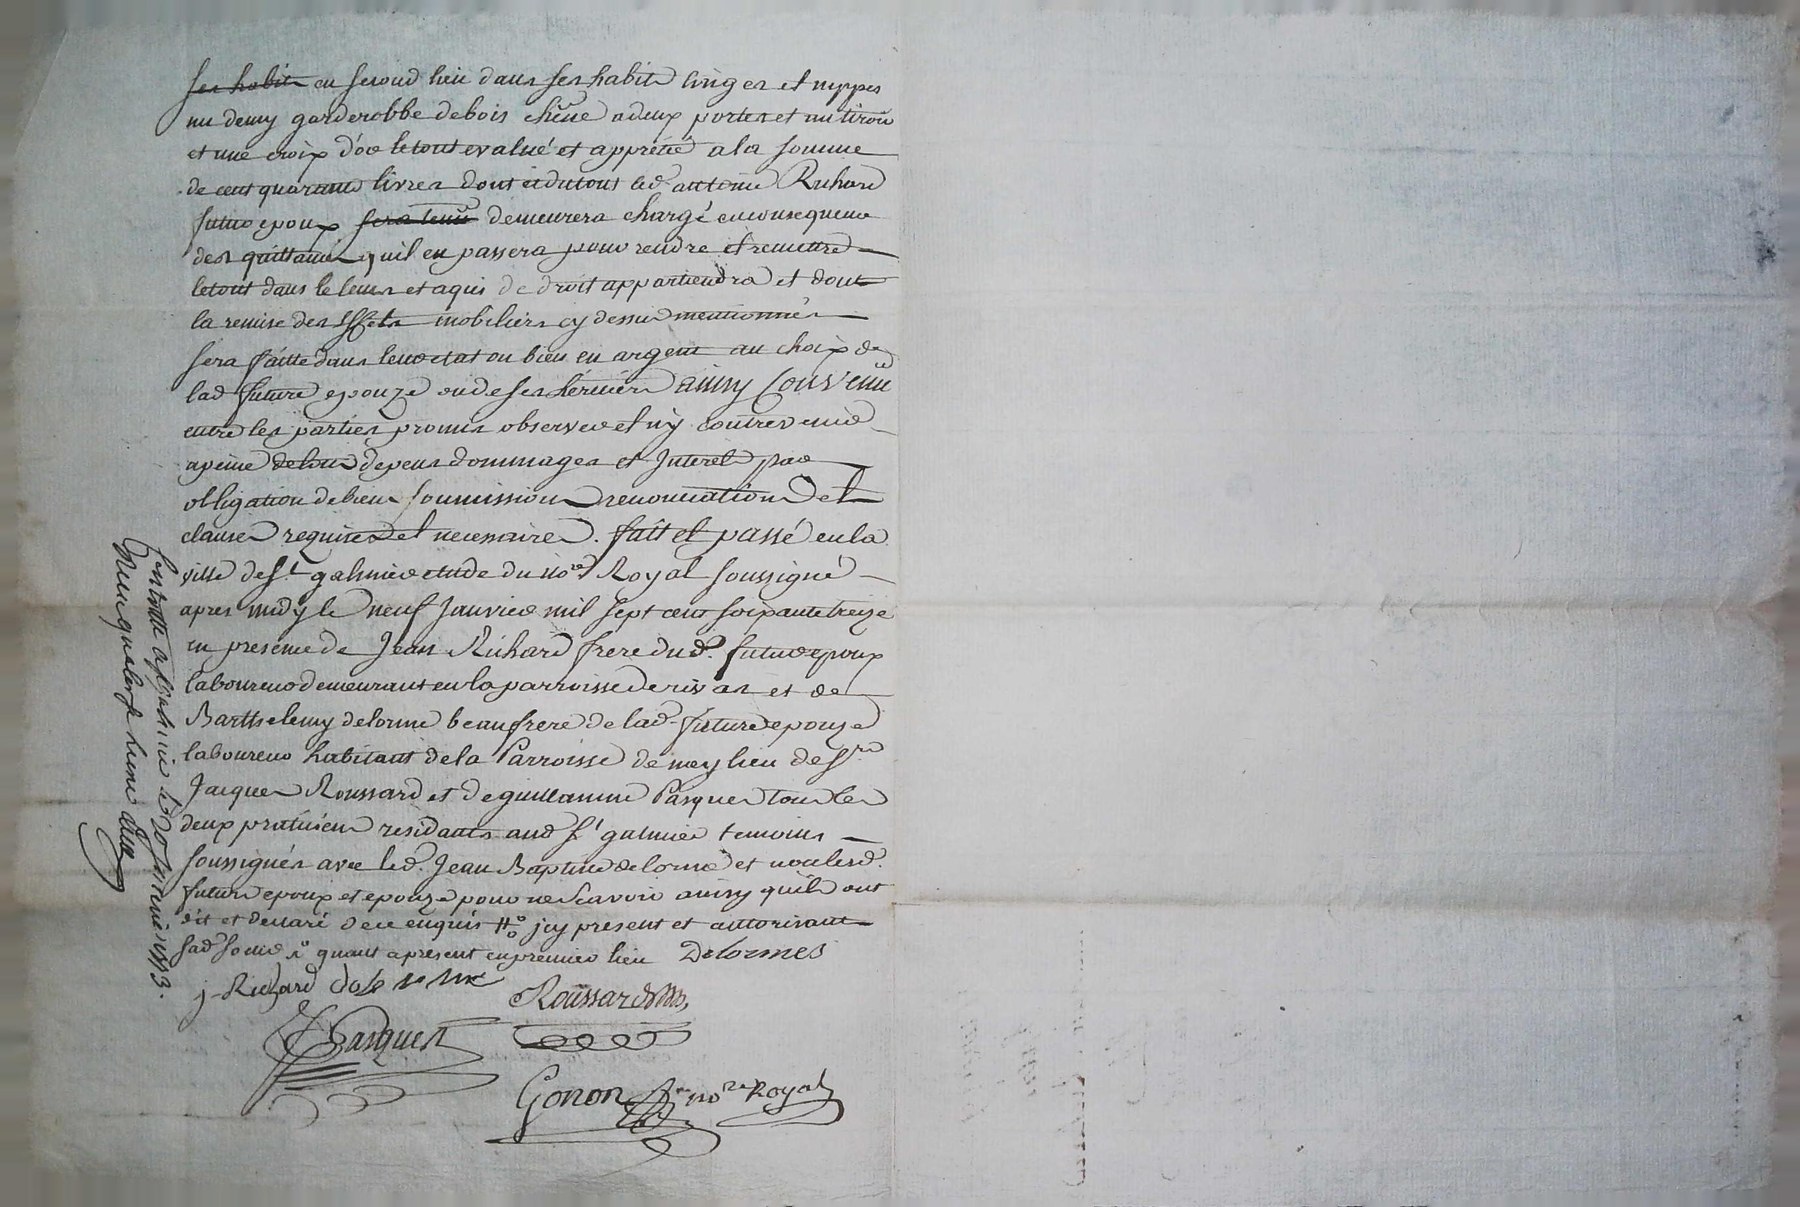 ses habits en second lieu dans ses habits linges et nippes
un demy garderobbe debois chêne adeux portes et un tiroir
et une croix d'or letout evalué et apprétié ala somme
de cent quarante livres dont et dutout led. antoine Richard
futur epoux sera tenu demeurera chargé enconsequence
des quittances quil en passera pour rendre et remettre
letout dans le tems et aqui de droit appartiendra et dont
la remise des effets mobiliers cy dessus mentionnés
sera faitte dans leur etat ou bien en argent au choix de
lad. future epouze ou de ses héritiers ainsy Convenu
entre les parties promis observer et ny contrevenir
apeine detous depens dommages et Interets par
obligation debiens soumissions renonciations et
clauses requises et necessaires. fait et passé en la
ville de St. galmier etude du nore Royal soussigné
apres midy le neuf Janvier mil sept cent soixante treize
en presence de Jean Richard frere dud. futur epoux
laboureur demeurant en la parroisse de rivas et de
Barthelemy delorme beaufrere de lad. future epouze
laboureur habitant de la Parroisse de meylieu de Sr.
Jacques Roussard et de guillaume Pasquer tous les
deux praticiens residants aud. St galmier temoins
soussignés avec led. Jean Baptiste delorme et non lesd.
futurs epoux et epouze pour ne scavoir ainsy quils ont
dit et declaré de ce enquis # icy present et autorisant
sad. soeur quant apresent enpremier lieu Delormes
j. Richard delorme
Roussard
Pasquer
Gonon nore Royal
Controllé a St galmier le janvier 1773.